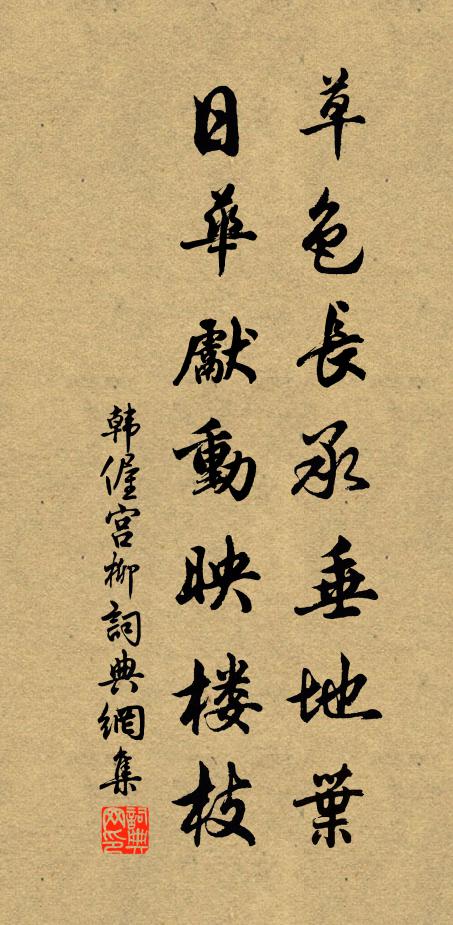 草色長承垂地葉
日華獻動映楼枝
韩偓宫柳詞典網集
詞典
网印